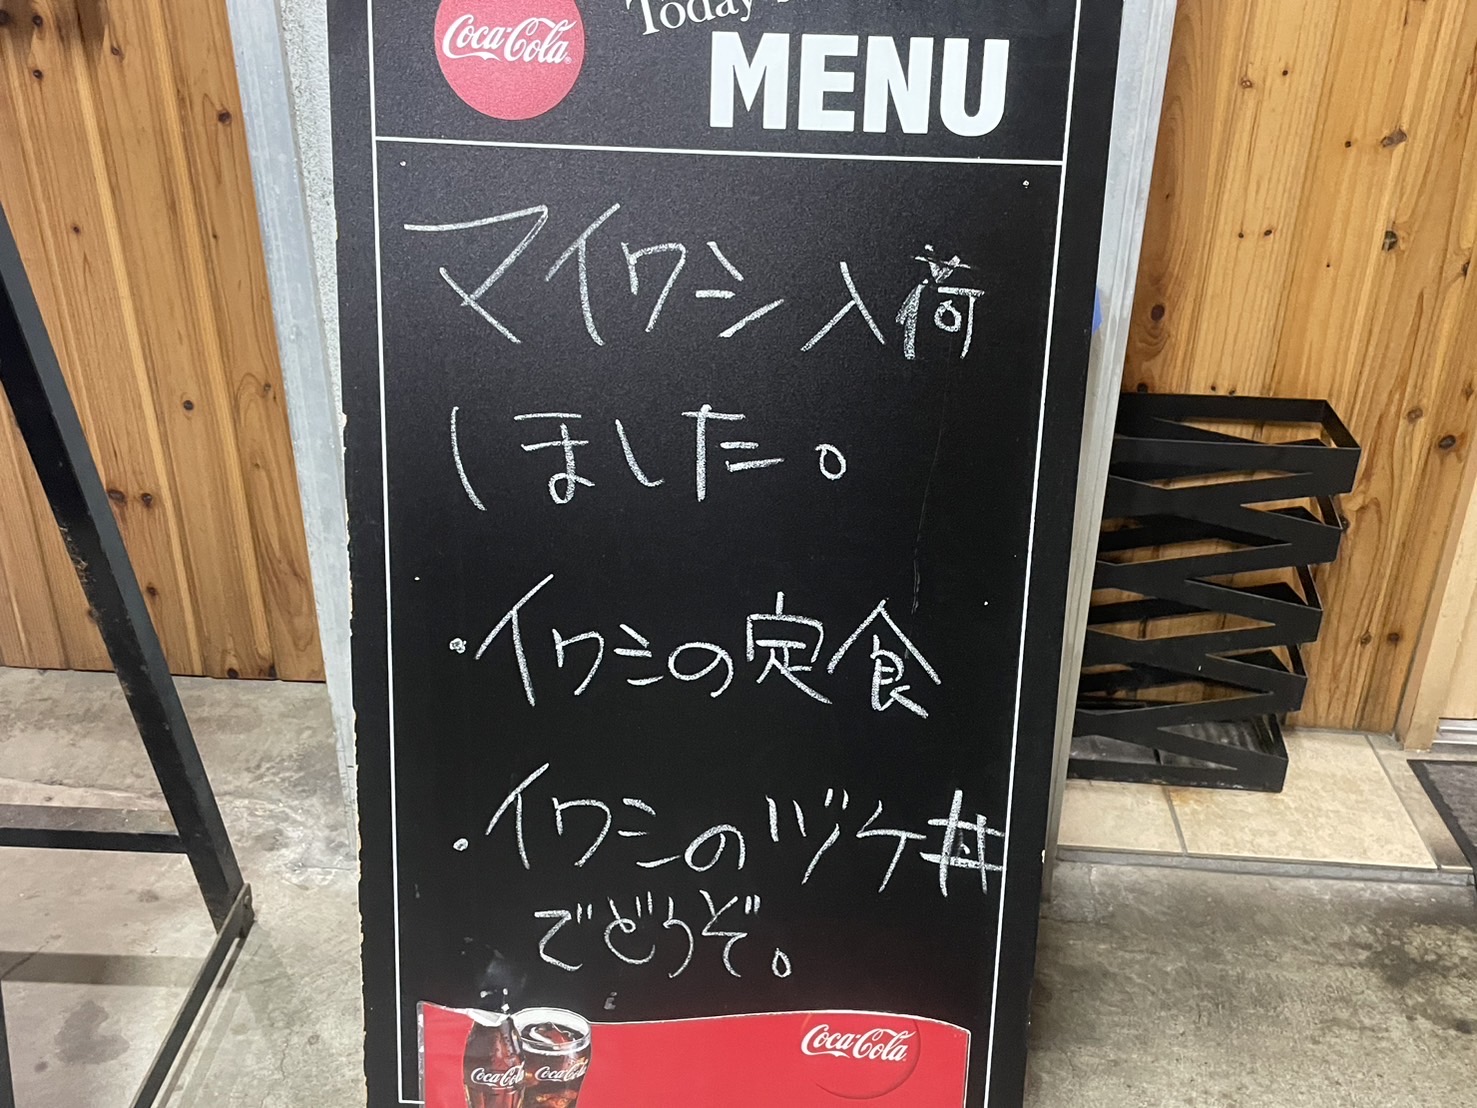 Coca-Cola
Today's
MENU
マイワシ入荷
しました。
・イワシの定食
・イワシのヅケ丼
でどうぞ。
Coca-Cola
Coca-Cola
Coca-Cola